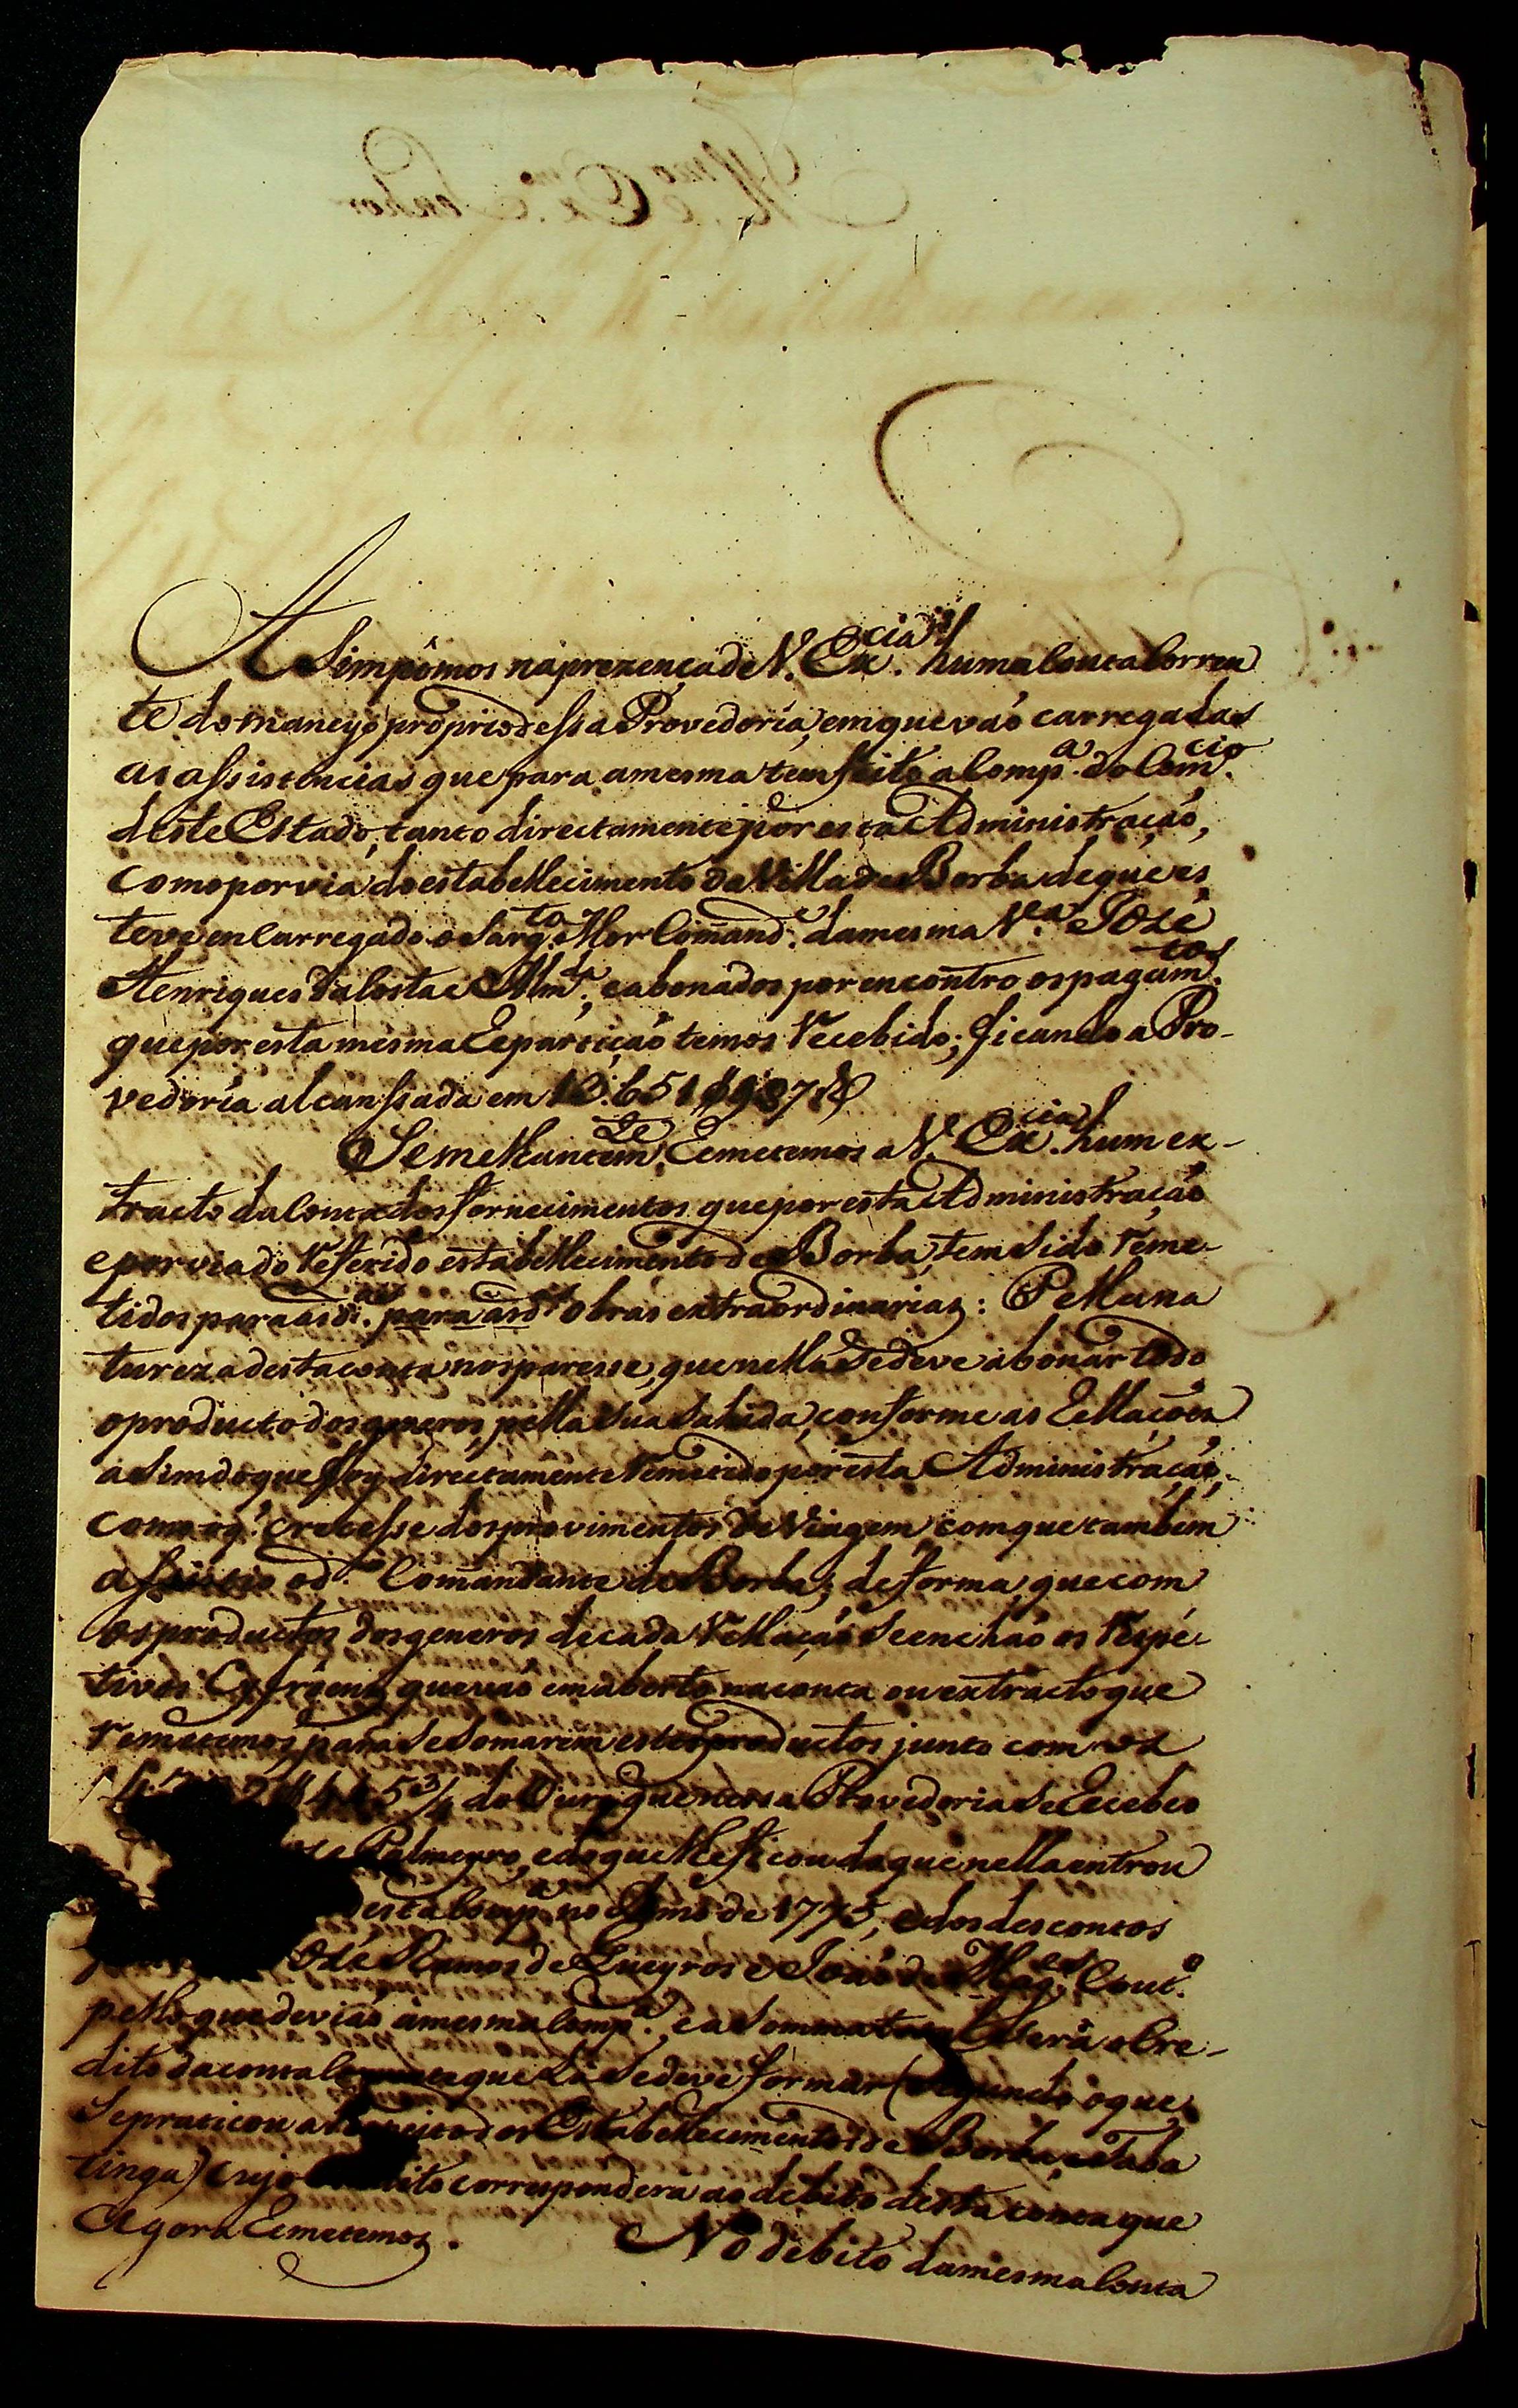 ASim pômos na prezença de V. Ex.cias huma Conta Corren
te do maneyo proprio dessa Provedoria, em que vaõ carregadas
as assistencias que para a mesma tem feito a Comp.a do Com.cio
deste Estado, tanto directamente por esta Administraçaõ,
como por via do estabellecimento da Villa de Borba de que es
teve encarregado o Sarg.to Mor Comand.e da mesma V.a Jozé
Henriques da Costa e Alm.da, e abonados por encontro os pagam.tos
que por esta mesma Repartiçaõ temos Recebido; ficando a Pro-
vedoria alcanssada em
Semelhantem.te Remetemos a V. Ex.cias hum ex-
tracto da Conta dos fornecimentos que por esta Administraçaõ
e por via do Referido estabellecimento de Borba, tem Sido Reme-
tidos para as d.as para as d.as obras extraordinarias: Pella na
tureza desta conta nos paresse, que nella Se deve abonar todo
o producto dos generos, pella Sua Sahida, conforme as Rellaçoens
aSim do que foy directamente Remetido por esta Administraçaõ,
como o q.' crecesse dos provimentos de Viagem, com que tambem
assistio o d.o Comandante de Borba; de forma, que com
os productos dos generos de cada Rellaçaõ Se enchaõ os Respé-
tivos Cyfroens, que vaõ em aberto na conta ou extracto que
Remetemos, para Se Somarem estes productos junto com os
5 3/4 do Ouro que nessa Provedoria Se Recebeo
Palmeyro, e do que lhe ficou da que nella entrou
desta Comp.a no Anno de 1775, e dos descontos
ozé Ramos de Queyros e João de Mag.es Cout.o
pello que deviaõ a mesma Comp.a, e a Somma Será o Cre-
dito da conta que Lá Se deve formar (Segundo o que
Se praticou a Respeito dos Estabellecimentos de Borba, e Taba
tinga) cujo credito corresponderá ao debito desta conta que
Agora Remetemos.
No débito da mesma Conta